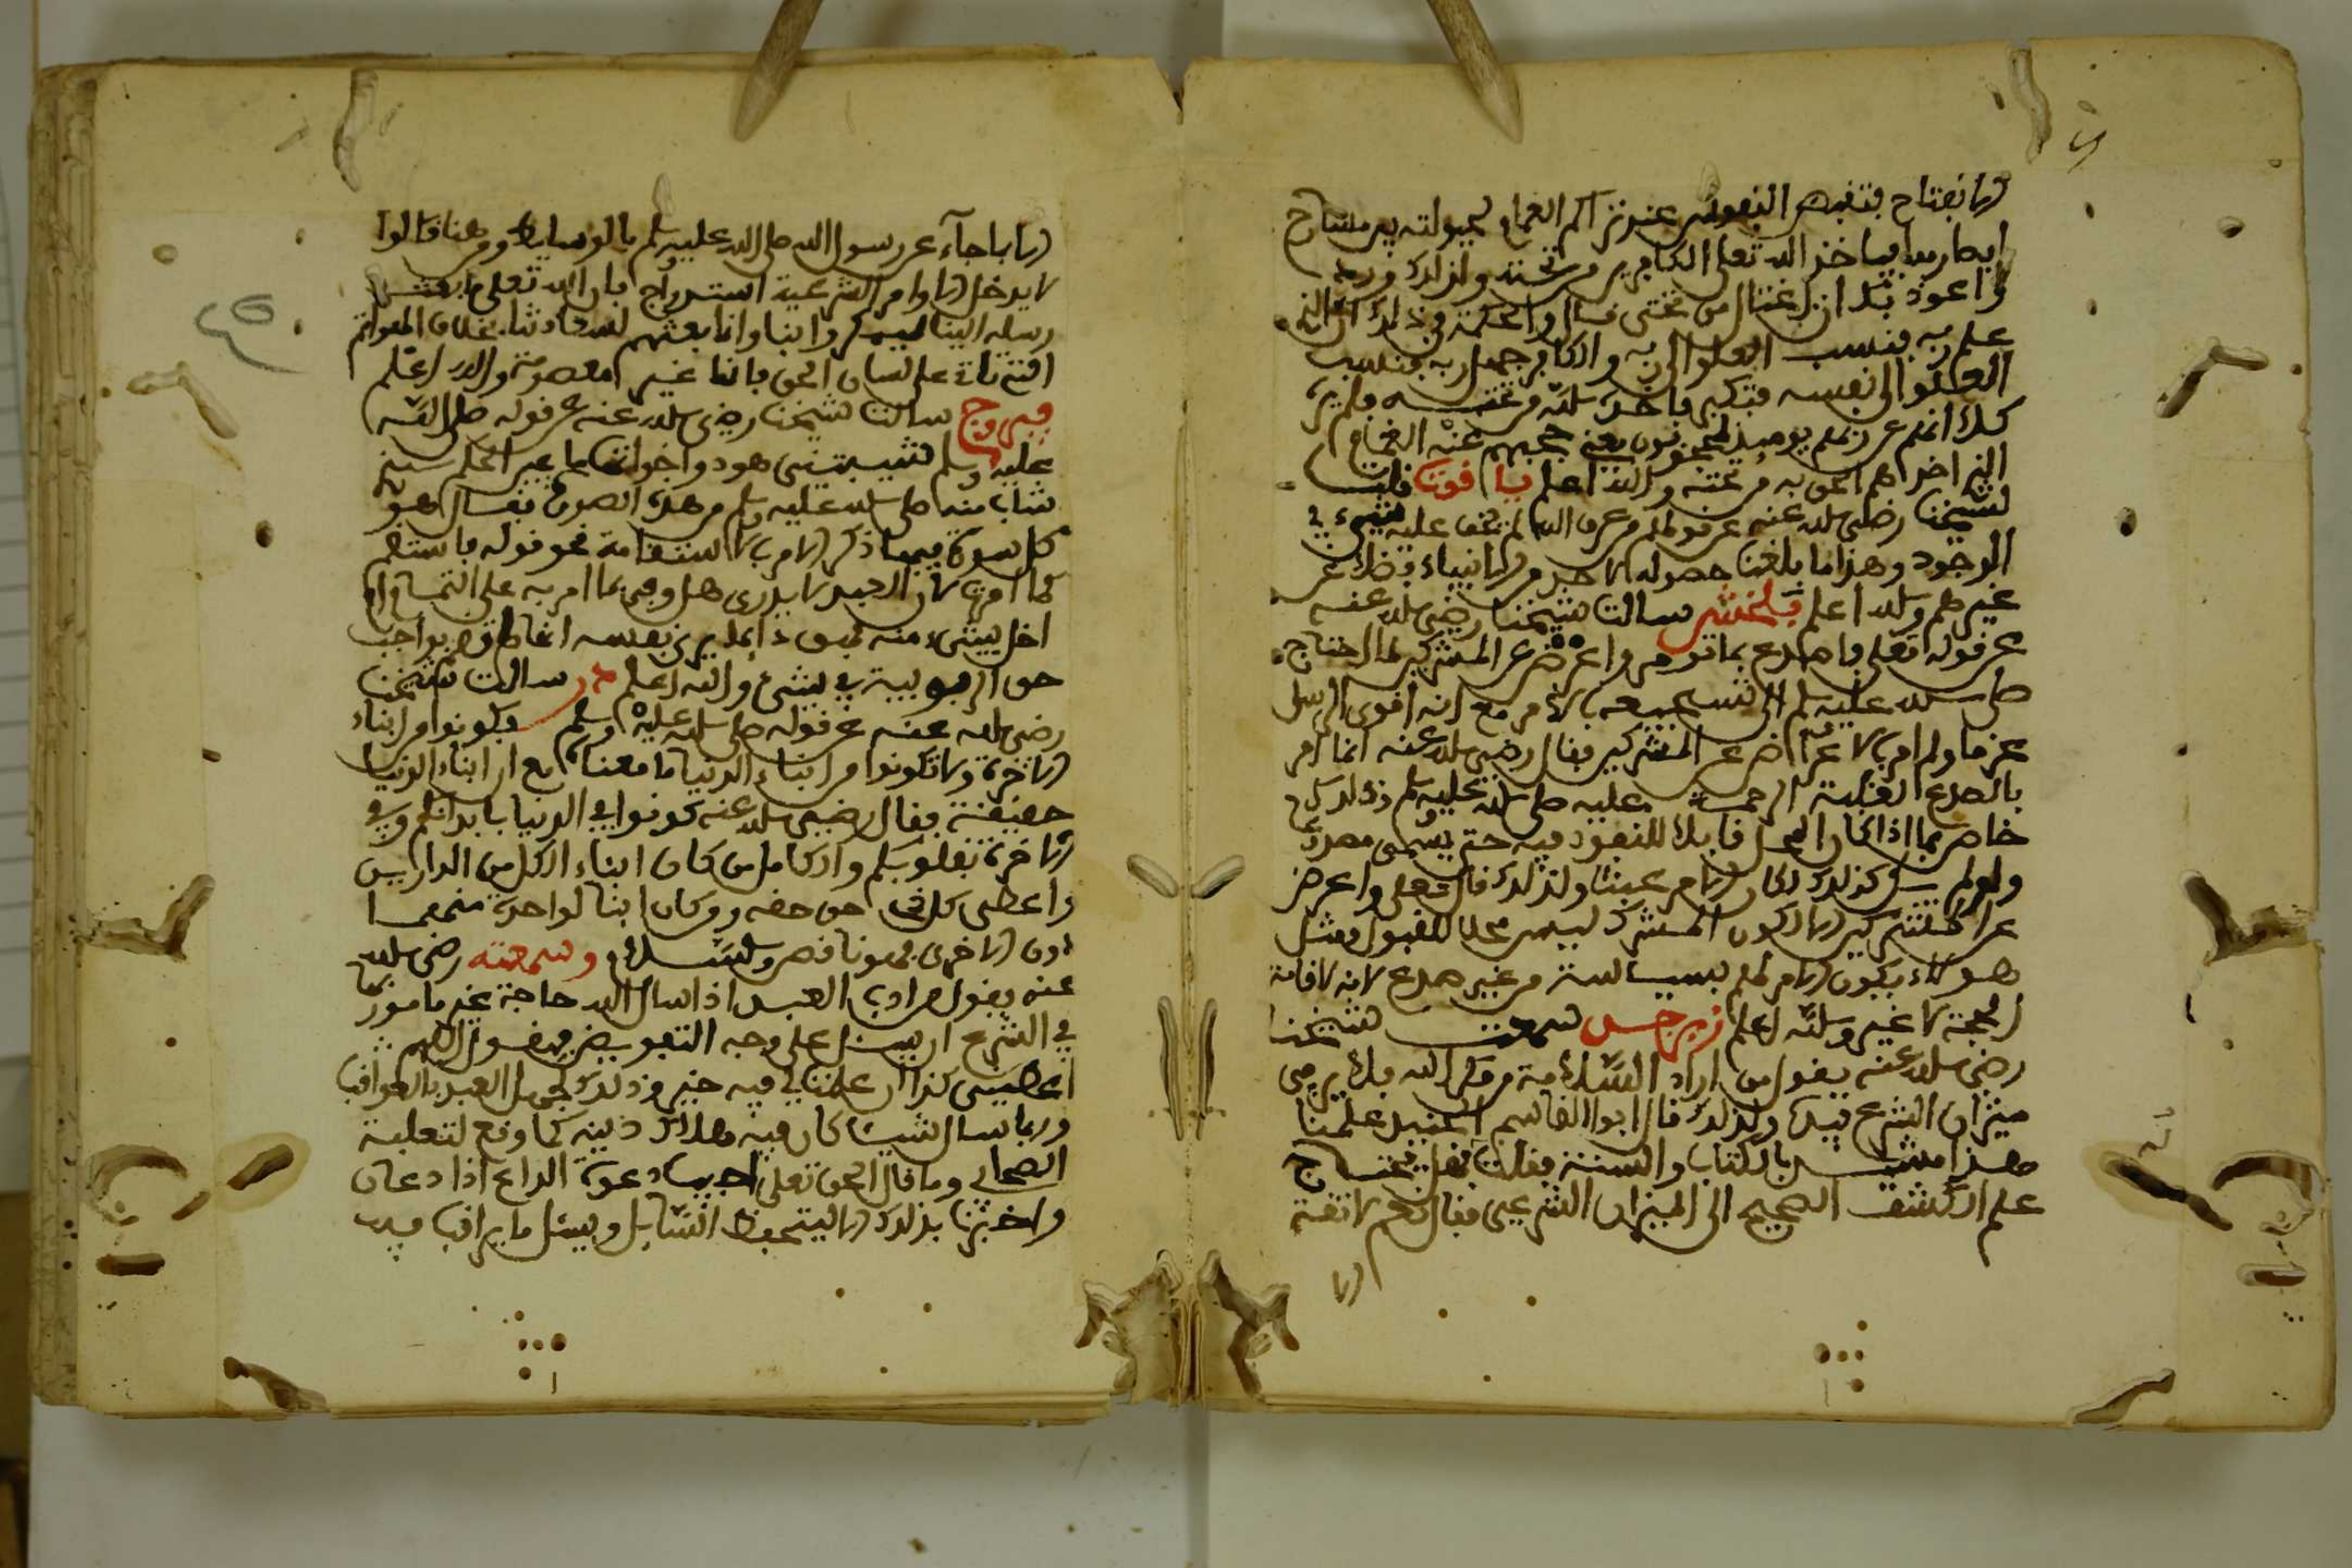 الانفتاح فتقبض النفوس عند تراكم الغمام لحيولته بين مشارح
الابصار فيأخذ الله تعالى الكافرين من تحته ولذلك ورد
واعوذ بك ان اغتال من تحتي قال والحكمة في ذلك ان
علم ربه فنسب العلو الى ربه والكافر جهل ربه فنسب
العلو الى نفسه فتكبر فاخذه الله من تحته فلم ير
كلا انهم عن ربهم يومئذ لمحجوبون يعني حجبهم عنه الغمام
الذي اخذهم الحق به من تحته والله اعلم ياقوت قلت
لشيخنا رضي الله عنه عن قولهم من عرف الله لم يخف عليه شيء في
الوجود وهذا ما بلغنا حصوله لاحد من الانبياء فضلا عن
غيرهم والله اعلم بلخش سالت شيخنا رضي الله عنه
عن قوله تعالى فاصدع بما تومر واعرض عن المشركين لما احتاج
صلى الله عليه وسلم الى تشجيعه بالامر مع انه اقوى الرسل
عزما ولم امر بالاعراض عن المشركين فقال رضي الله عنه انما امر
بالصدع لغلبة الرحمة عليه صلى الله عليه وسلم وذلك
خاص بما اذا كان المحل قابلا للنفوذ فيه حتى يسمى صدع
ولو لم يكن كذلك لكان الامر عبثا ولذلك قال تعالى واعرض
عن المشركين الا لكون المشرك ليس محلا للقبول فمثل
هولاء يكون الامر لهم بسياسة من غير صدع لانه لاقامة
الحجة لا غير والله اعلم زبرجد سمعت شيخنا
رضي الله عنه يقول من اراد السلامة من مكر الله فلا يرمي
ميزان الشرع من يده ولذلك قال ابوا القاسم الجنيد علمنا
هذا مشيد بالكتاب والسنة فقلت فهل يحتاج
علم الكشف الصحيح الى الميزان الشرعي فقال نعم لا ثقة
الا
الا بما جاء عن رسول الله صلى الله عليه وسلم بالوسايط ومن هنا قالوا
لا يدخل الاوامر الشرعية استدراج فان الله تعالى ما بعث
رسله الينا ليمكروا بنا وانما بعثهم لسعادتنا بخلاف الهواتف
الاتية على لسان الحق فانها غير معصومة والله اعلم
فيروج سالت شيخنا رضي الله عنه عن قوله صلى الله
عليه وسلم شيبتني هود واخواتها ما عين الحكم الذي
شاب منه صلى الله عليه وسلم من هذه الصورة فقال هو
كل سورة فيها ذكر الامر بالاستقامة نحو قوله فاستقم
كما امرت لان العبد لا يدري هل وفى بما امر به على التمام ام
اخل بشيء منه فهو دائما يرى نفسه انها ما قام بواجب
حق الربوبية في شيء والله اعلم در سالت شيخنا
رضي الله عنه عن قوله صلى الله عليه وسلم فكونوا من ابناء
الاخرة ولا تكونوا من ابناء الدنيا ما معناه مع ان ابناء الدنيا
حقيقة فقال رضي الله عنه كونوا في الدنيا بابدانكم وفي
الاخرة بقلوبكم والكامل من كان ابناء لكل من الدارين
واعطى كل ذي حق حقه ومن كان ابنا لواحدة منهما
دون الاخرى فهو ناقص والسلام وسمعته رضي الله
عنه يقول من ادب العبد اذا سال الله حاجة غير مامور بها
في الشرع ان يسئل على وجه التفويض فيقول اللهم
اعطيني كذا ان علمت لي فيه خير وذلك لجهل العبد بالعواقب
وربما سال شيئا كان فيه هلاك دينه كما وقع لثعلبة
الصحابي وما قال الحق تعالى اجيب دعوة الداع اذا دعان
واخبرنا بذلك الا ليتحفظ السايل ويسئل ما يراقب فيه